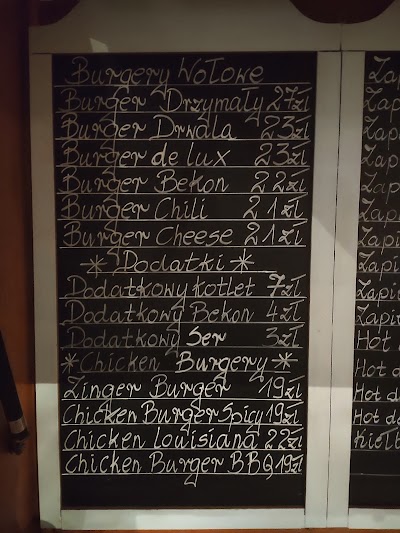 Burgery Wołowe
Burger Drzymały 27zł
Burger Drwala 23zł
Burger de lux 23zł
Burger Bekon 22zł
Burger Chili 21zł
Burger Cheese 21zł
* Dodatki *
Dodatkowy kotlet 7zł
Dodatkowy Bekon 4zł
Dodatkowy Ser 3zł
*Chicken Burgery*
Zinger Burger 19zł
Chicken Burger Spicy 19zł
Chicken Louisiana 22zł
Chicken Burger BBQ 19zł
Hot
Hot
Hot